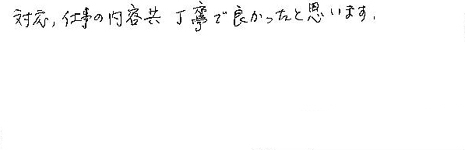 対応,仕事の内容共 丁寧で良かったと思います.